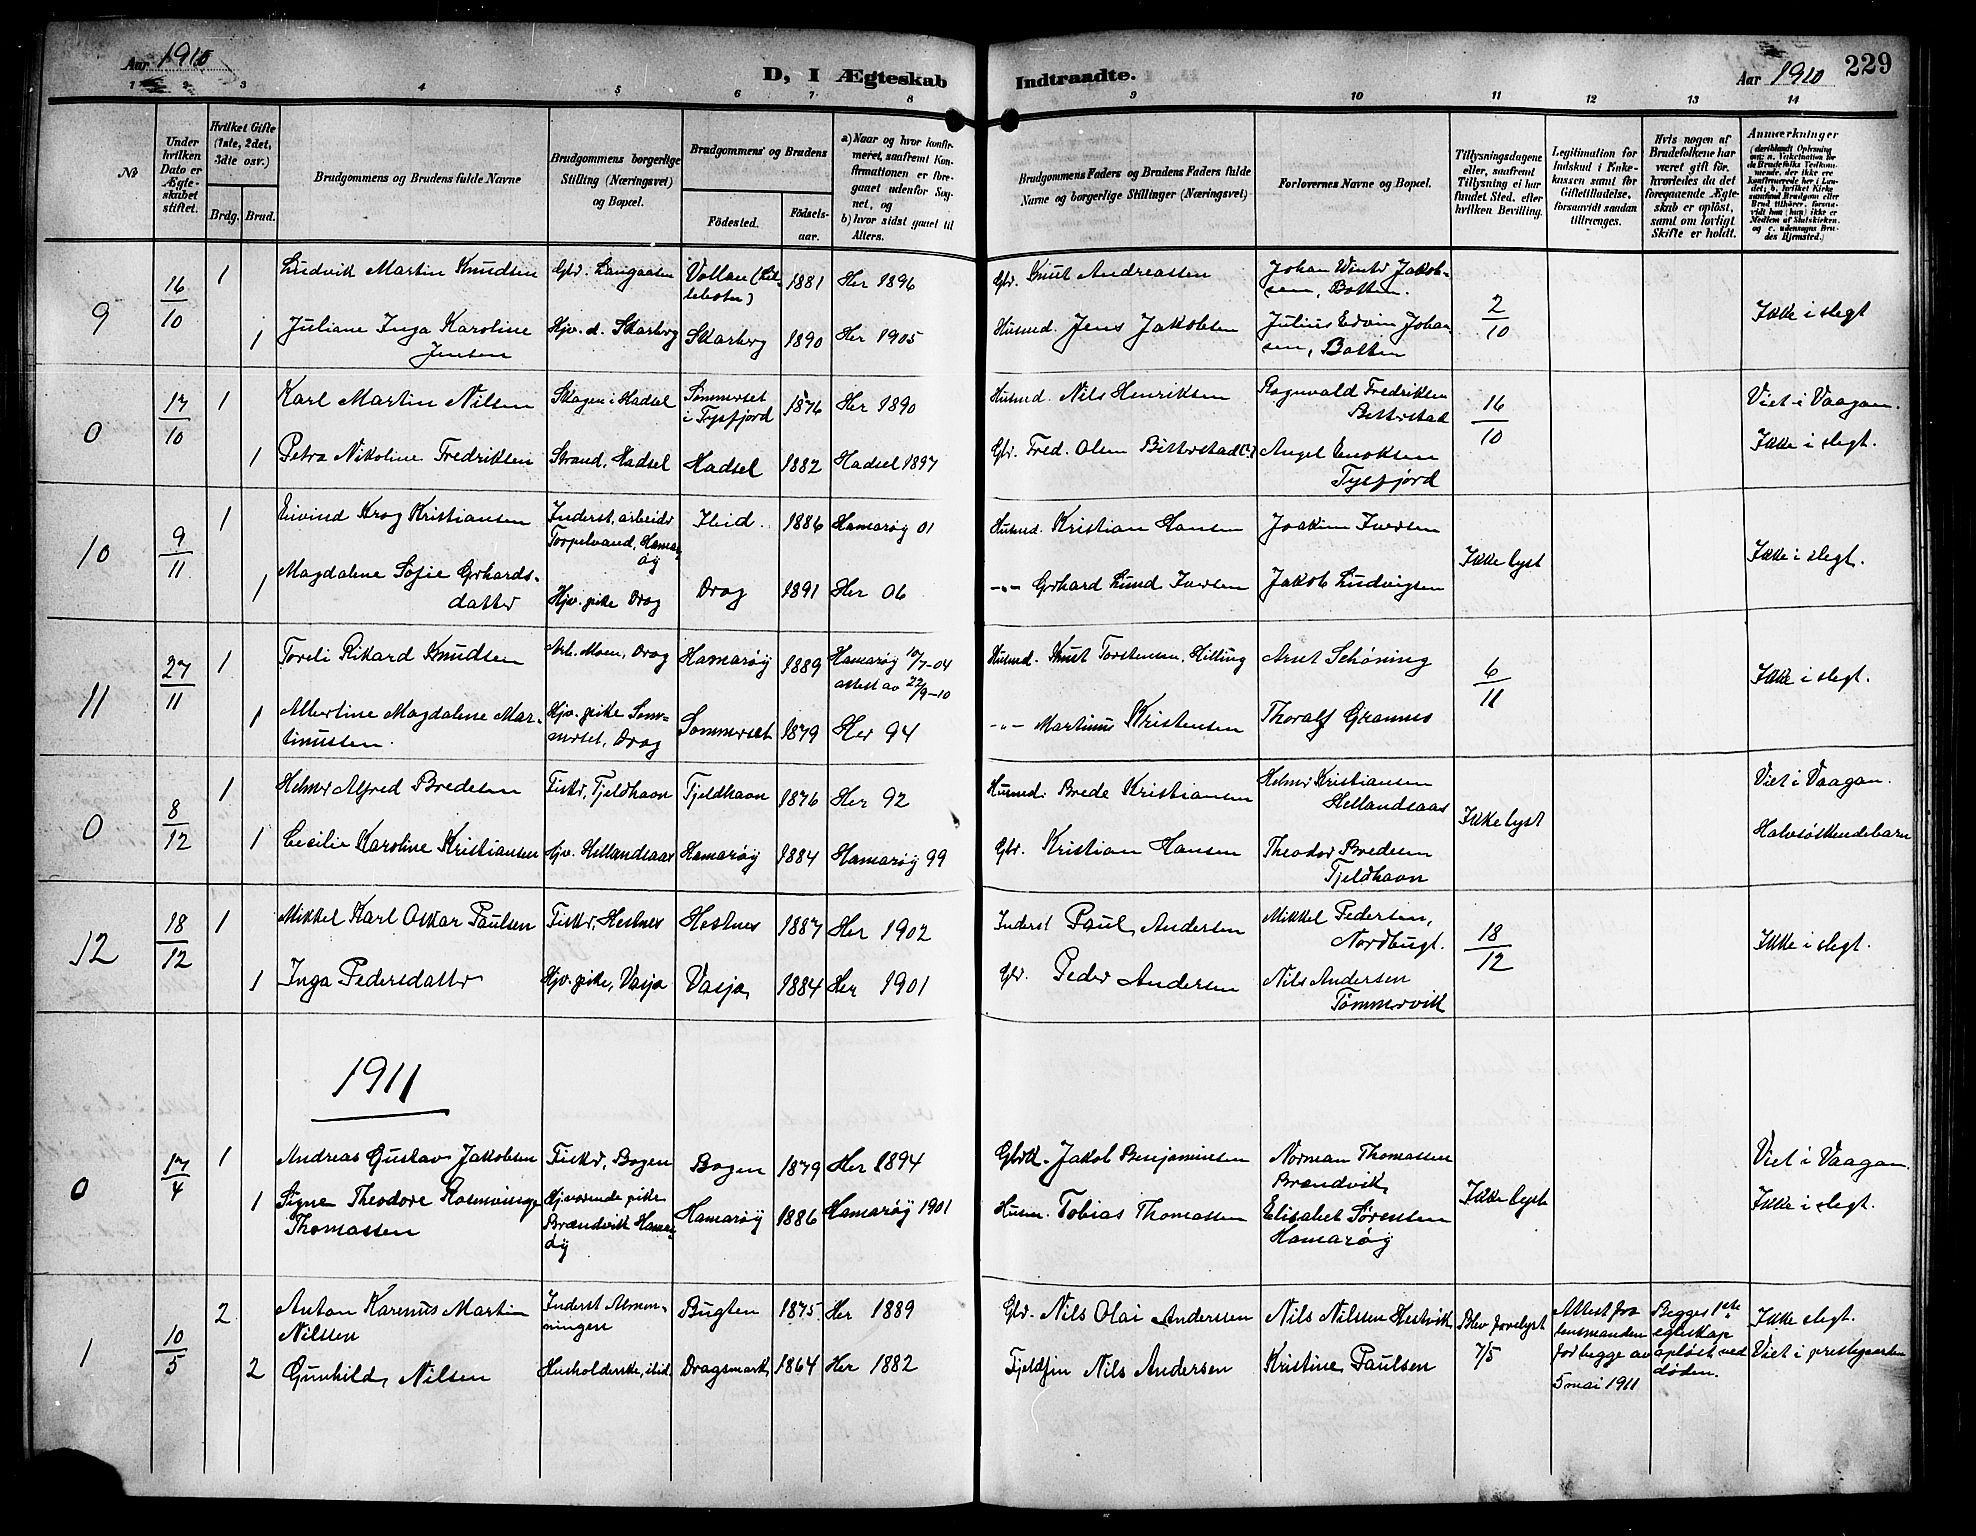 Aar 1910
D, I Ægteskab Indtraadte.
Aar 1910 229
1 2 3 4 5 6 7 8 9 10 11 12 13 14
No
Under hvilken Dato er Ægteskabet stiftet.
Hvilket Gifte (1ste, 2det, 3die osv.)
Brdg. Brud.
Brudgommens og Brudens fulde Navne
Brudgommens borgerlige Stilling (Næringsvei) og Bopæl.
Brudgommens og Brudens
Födested. Födselsaar.
a) Naar og hvor konfirmeret, saafremt Konfirmationen er foregaaet udenfor Sognet, og
b) hvor sidst gaaet til Alters.
Brudgommens Faders og Brudens Faders fulde Navne og borgerlige Stillinger (Næringsvei)
Forlovernes Navne og Bopæl.
Tillysningsdagene eller, saafremt Tillysning ei har fundet Sted, efter hvilken Bevilling.
Legitimation for Indskud i Enkekassen samt for Giftetilladelse, forsaavidt saadan tiltrænges.
Hvis nogen af Brudefolkene har været gift för, hvorledes da det foregaaende Ægteskab er oplöst, samt om lovligt Skifte er holdt.
Anmærkninger
9 16/10 1 Ludvik Martin Knudsen Gbr. Langaasen Vollan (Lillebotn) 1881 Her 1896 Gbr. Knut Andreassen Johan Winter Jakobsen, Botten. 2/10 Ikke i slegt
1 Juliane Inga Karoline Jensen Hjv. d. Skarberg Skarberg 1890 Her 1905 Husmd. Jens Jakobsen Julius Edvin Johansen, Botten
0 17/10 1 Karl Martin Nilsen Skagen i Hadsel Sommerset i Tysfjord 1876 Her 1890 Husmd. Nils Henriksen Ragnvald Fredriksen Bitterstad 16/10 Viet i Vaagan.
1 Petra Nikoline Fredriksen Strand, Hadsel Hadsel 1882 Hadsel 1897 Gbr. Fred. Olsen Bitterstad Angel Enoksen Tysfjord Ikke i slegt.
10 9/11 1 Eivind Krog Kristiansen Inderst, arbeider Torpelvand, Hamarøy Ibid. 1886 Hamarøy 01 Husmd. Kristian Hansen Joakim Iversen Ikke lyst Ikke i slegt.
1 Magdalene Sofie Gerhardsdatter Hjv. pike Drag Drag 1891 Her 06 -"- Gerhard Lund Iversen Jakob Ludvigsen
11 27/11 1 Toreli Rikard Knudsen Arb. Moen, Drag Hamarøy 1889 Hamarøy 10/7-04 attest av 22/9-10 Husmd. Knut Torstensen, Hilling Arnt Schøning 6/11 Ikke i slegt.
1 Albertine Magdalene Martinussen. Hjv. pike Sommerset, Drag Sommerset 1879 Her 94 -"- Martinus Kristensen Thoralf Grannes
0 8/12 1 Helmer Alfred Bredesen Fisker, Tjeldhavn Tjeldhavn 1876 Her 92 Husmd. Brede Kristiansen Helmer Kristiansen Hellandsaas Ikke lyst Viet i Vaagan.
1 Cecilie Karoline Kristiansen Hjv. Hellandsaas Hamarøy 1884 Hamarøy 99 Gbr. Kristian Hansen Theodor Bredesen Tjeldhavn Halvsøskendebarn
12 18/12 1 Mikkel Karl Oskar Paulsen Fisker, Hestnes Hestnes 1887 Her 1902 Inderst Paul Andersen Mikkel Pedersen, Nordbugt. 18/12 Ikke i slegt.
1 Inga Pedersdatter Hjv. pike, Vasja Vasja, 1884 Her 1901 Gbr. Peder Andersen Nils Andersen Tømmervik
1911
0 17/4 1 Andreas Gustav Jakobsen Fisker, Bogen Bogen 1879 Her 1894 Gbrk. Jakob Benjaminsen Norman Thomassen Brændvik, Ikke lyst Viet i Vaagan.
1 Signe Theodore Rosenvinge Thomassen Hjværende pike Brændvik Hamarøy Hamarøy 1886 Hamarøy 1901 Husm. Tobias Thomassen Elisabet Sørensen Hamarøy Ikke i slegt.
1 10/5 2 Anton Karenus Martin Nilssen Inderst Almenningen Bugten 1875. Her 1889 Gbr. Nils Olai Anderssen Nils Nilssen Hestvik Blev forelyst 7/5 Attest fra lensmanden for begge av 5 mai 1911 Begges 1ste egteskap opløst ved døden. Ikke slegt.
2 Gunhild, Nilsen Husholderske, ibid. Dragsmark, 1864 Her 1882 Fjeldfin Nils Andersen Kristine Paulsen Viet i prestegaarden